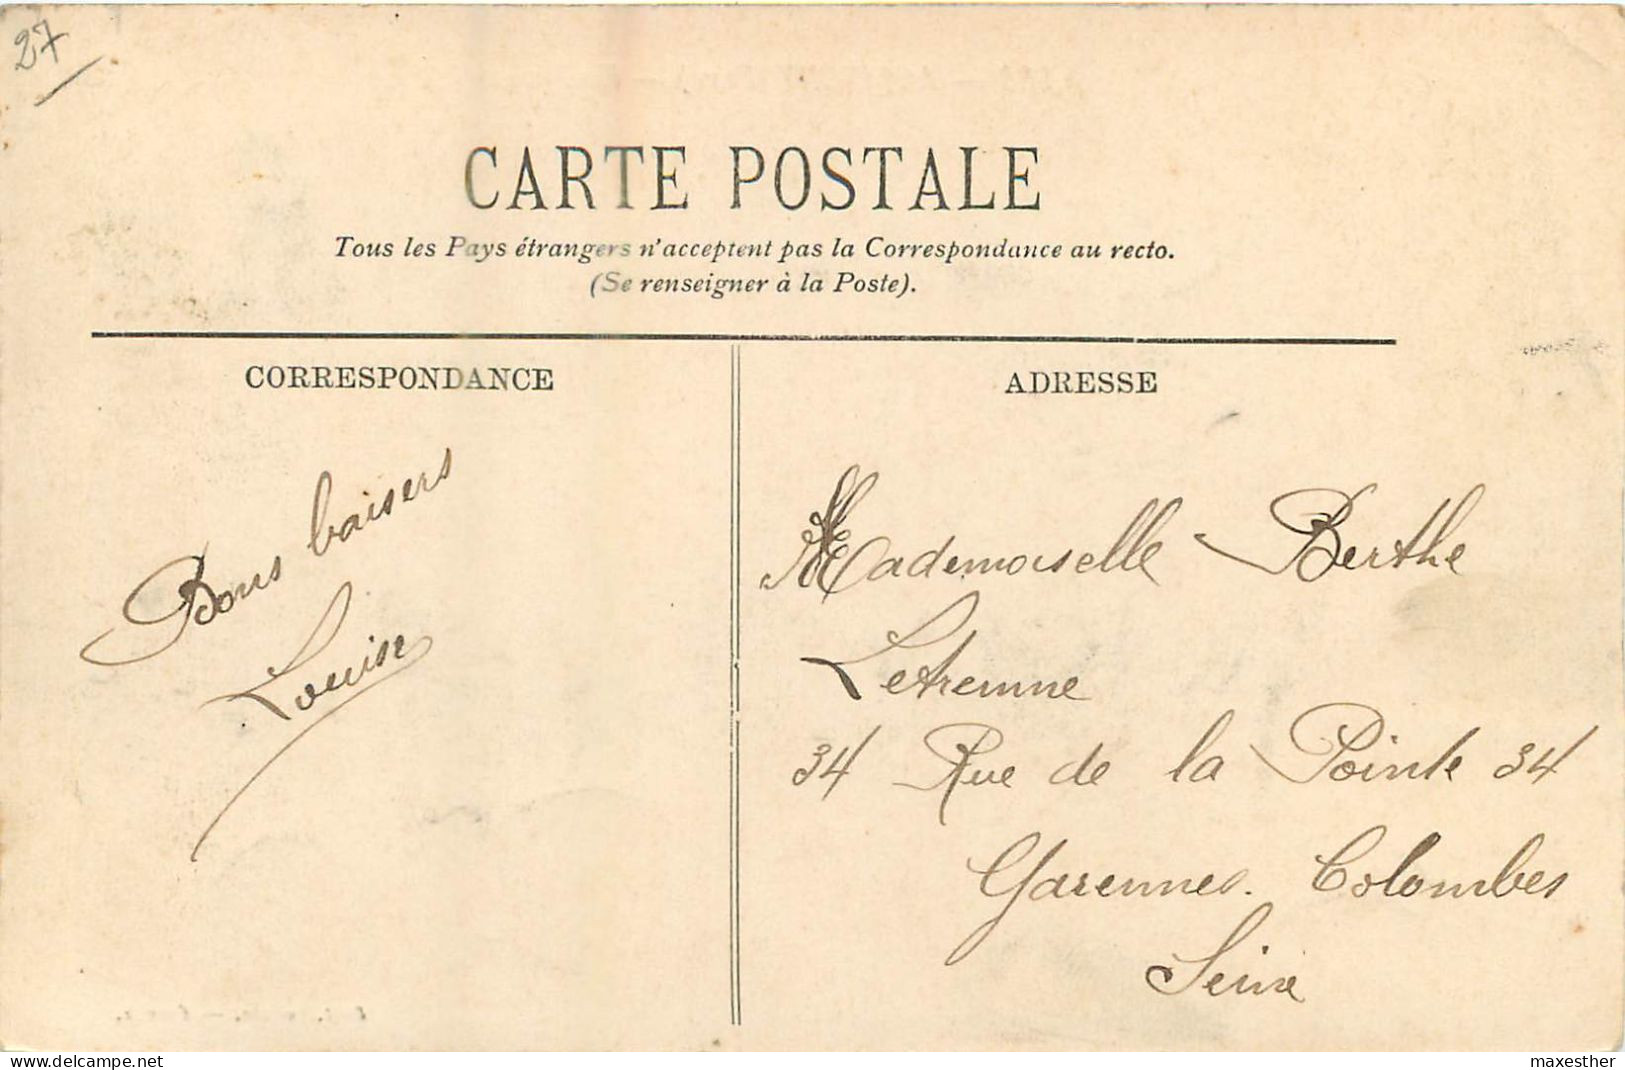 27
CARTE POSTALE
Tous les Pays étrangers n'acceptent pas la Correspondance au recto.
(Se renseigner à la Poste).
CORRESPONDANCE
Bons baisers
Louise
ADRESSE
Mademoiselle Berthe
Letremne
34 Rue de la Pointe 34
Garennes. Colombes
Seine
www.delcampe.net
maxesther